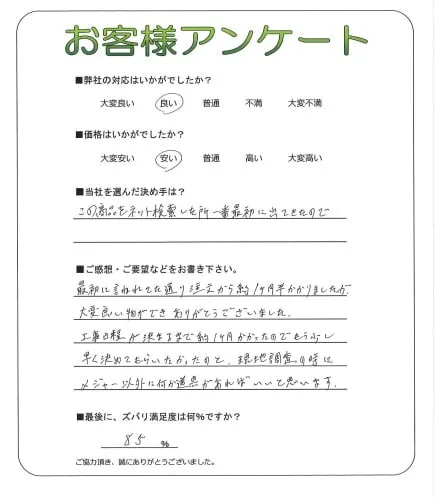 お客様アンケート
■弊社の対応はいかがでしたか？
大変良い 良い 普通 不満 大変不満
■価格はいかがでしたか？
大変安い 安い 普通 高い 大変高い
■当社を選んだ決め手は？
この商品をネット検索した所一番最初に出てきたので
■ご感想・ご要望などをお書き下さい。
最初に言われてた通り注文から約1ヶ月半かかりましたが、
大変良い物ができありがとうございました。
工事の程が決まるまで約1ヶ月かかったのでもう少し
早く決めてもらいたかったのと、現地調査の時に
メジャー以外に何か道具があればいいと思います。
■最後に、ズバリ満足度は何％ですか？
85 ％
ご協力頂き、誠にありがとうございました。